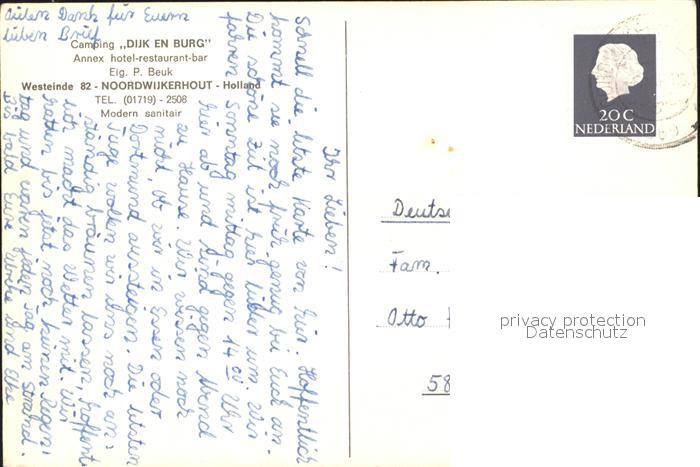 Vielen Dank für Euern
lieben Brief
Camping „DIJK EN BURG"
Annex hotel-restaurant-bar
Eig. P. Beuk
Westeinde 82 - NOORDWIJKERHOUT - Holland
TEL. (01719) - 2508
Modern sanitair
Ihr Lieben!
Schnell die letzte Karte von hier. Hoffentlich
kommt sie noch früh genug bei Euch an.
Die schöne Zeit ist hier leider um. Wir
fahren Sonntag mittag gegen 14 00 Uhr
hier ab und sind gegen Abend
zu Hause. Wir wissen noch
nicht ob wir in Essen oder
Dortmund aussteigen. Die letzten
Tage wollen wir uns noch an-
ständig bräunen lassen, hoffent-
lich macht das Wetter mit. Wir
hatten bis jetzt noch keinen Regen-
tag und waren jeden Tag am Strand.
Bis bald Eure und Elke
20 C
NEDERLAND
Deuts
Fam.
Otto
58
privacy protection
Datenschutz